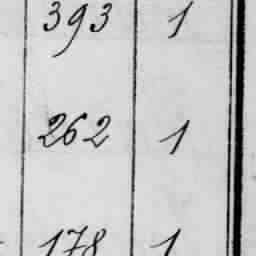 393 1
262 1
178 1